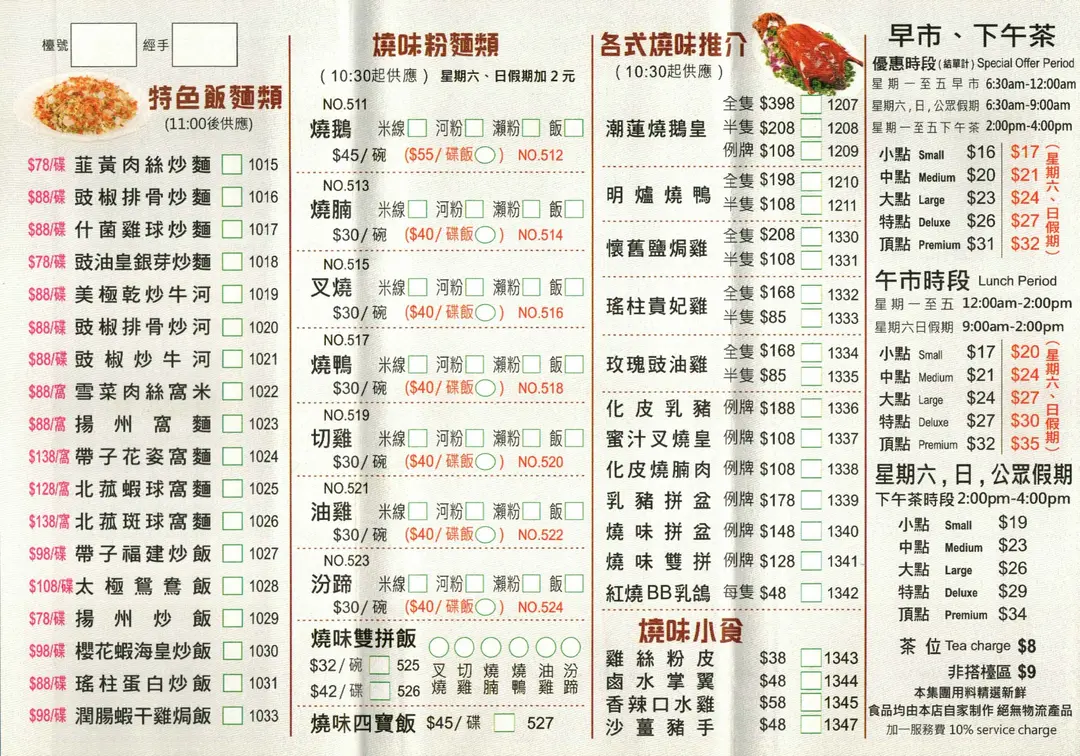 檯號 經手
特色飯麵類
(11:00後供應)
$78/碟 韮黃肉絲炒麵 1015
$88/碟 豉椒排骨炒麵 1016
$88/碟 什菌雞球炒麵 1017
$78/碟 豉油皇銀芽炒麵 1018
$88/碟 美極乾炒牛河 1019
$88/碟 豉椒排骨炒河 1020
$88/碟 豉椒炒牛河 1021
$88/窩 雪菜肉絲窩米 1022
$88/窩 揚州窩麵 1023
$138/窩 帶子花姿窩麵 1024
$128/窩 北菰蝦球窩麵 1025
$138/窩 北菰斑球窩麵 1026
$98/碟 帶子福建炒飯 1027
$108/碟 太極鴛鴦飯 1028
$78/碟 揚州炒飯 1029
$98/碟 櫻花蝦海皇炒飯 1030
$88/碟 瑤柱蛋白炒飯 1031
$98/碟 潤腸蝦干雞焗飯 1033
燒味粉麵類
(10:30起供應) 星期六、日假期加2元
NO.511
燒鵝 米線 河粉 瀨粉 飯
$45/碗 ($55/碟飯) NO.512
NO.513
燒腩 米線 河粉 瀨粉 飯
$30/碗 ($40/碟飯) NO.514
NO.515
叉燒 米線 河粉 瀨粉 飯
$30/碗 ($40/碟飯) NO.516
NO.517
燒鴨 米線 河粉 瀨粉 飯
$30/碗 ($40/碟飯) NO.518
NO.519
切雞 米線 河粉 瀨粉 飯
$30/碗 ($40/碟飯) NO.520
NO.521
油雞 米線 河粉 瀨粉 飯
$30/碗 ($40/碟飯) NO.522
NO.523
汾蹄 米線 河粉 瀨粉 飯
$30/碗 ($40/碟飯) NO.524
燒味雙拼飯
$32/碗 525
$42/碟 526
叉燒 切雞 燒腩 燒鴨 油雞 汾蹄
燒味四寶飯 $45/碟 527
各式燒味推介
(10:30起供應)
全隻 $398 1207
潮蓮燒鵝皇 半隻 $208 1208
例牌 $108 1209
明爐燒鴨 全隻 $198 1210
半隻 $108 1211
懷舊鹽焗雞 全隻 $208 1330
半隻 $108 1331
瑤柱貴妃雞 全隻 $168 1332
半隻 $85 1333
玫瑰豉油雞 全隻 $168 1334
半隻 $85 1335
化皮乳豬 例牌 $188 1336
蜜汁叉燒皇 例牌 $108 1337
化皮燒腩肉 例牌 $108 1338
乳豬拼盆 例牌 $178 1339
燒味拼盆 例牌 $148 1340
燒味雙拼 例牌 $128 1341
紅燒BB乳鴿 每隻 $48 1342
燒味小食
雞絲粉皮 $38 1343
鹵水掌翼 $48 1344
香辣口水雞 $58 1345
沙薑豬手 $48 1347
早市、下午茶
優惠時段(結單計) Special Offer Period
星期一至五早市 6:30am-12:00am
星期六,日,公眾假期 6:30am-9:00am
星期一至五下午茶 2:00pm-4:00pm
小點 Small $16 $17
中點 Medium $20 $21
大點 Large $23 $24
特點 Deluxe $26 $27
頂點 Premium $31 $32
(星期六、日假期)
午市時段 Lunch Period
星期一至五 12:00am-2:00pm
星期六日假期 9:00am-2:00pm
小點 Small $17 $20
中點 Medium $21 $24
大點 Large $24 $27
特點 Deluxe $27 $30
頂點 Premium $32 $35
(星期六、日假期)
星期六,日,公眾假期
下午茶時段 2:00pm-4:00pm
小點 Small $19
中點 Medium $23
大點 Large $26
特點 Deluxe $29
頂點 Premium $34
茶位 Tea charge $8
非搭檯區 $9
本集團用料精選新鮮
食品均由本店自家制作 絕無物流產品
加一服務費 10% service charge